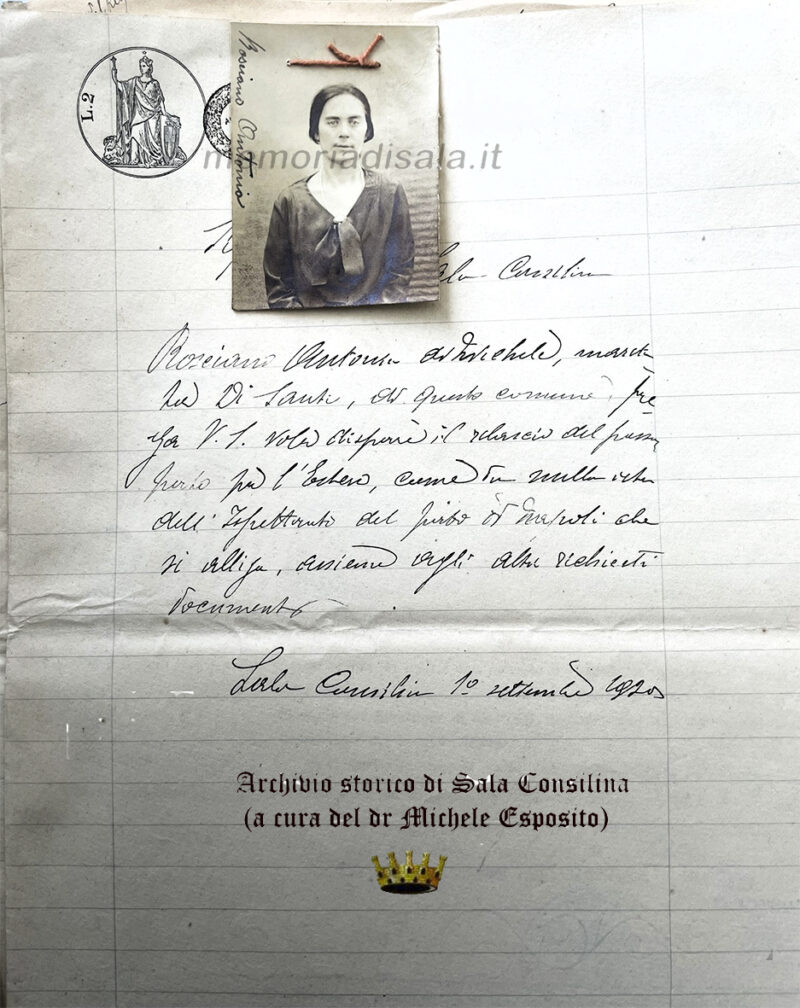 L.2
Rosciano Antonia
memoriadisala.it
Sala Consilina
Rosciano Antonia di Michele, marita
ta Di Santi, di questo comune, pre
ga V. S. voler disporre il rilascio del passa
porto per l'Estero, come da nulla osta
dell'Ispettorato del porto di Napoli che
si alliga, assieme agli altri richiesti
documenti
Sala Consilina 1º settembre
Archivio storico di Sala Consilina
(a cura del dr Michele Esposito)